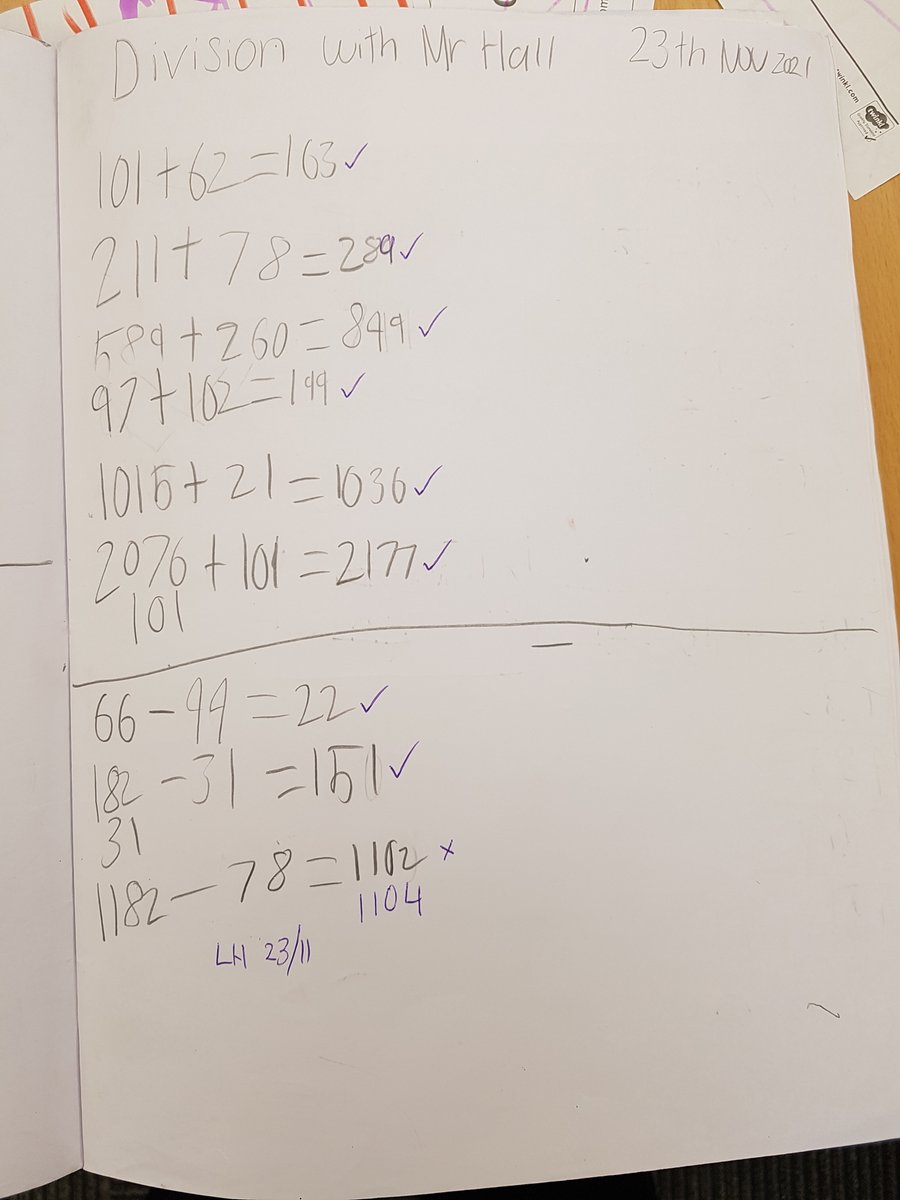 Division with Mr Hall 23th Nov 2021
101+62=163✓
211+78=289✓
589+260=849✓
97+102=199✓
1015+21=1036✓
2076+101=2177✓
101
66-44=22✓
182-31=151✓
31
1182-78=1102 x
1104
LH 23/11
twinkl.com
twinkl